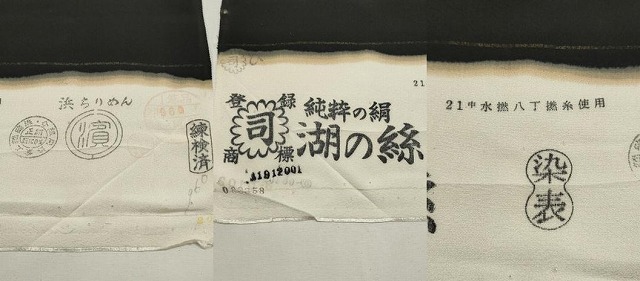 浜ちりめん
濱
練検済
21
登録
商標
司
純粋の絹
湖の絲
A1912001
21中水撚八丁撚糸使用
染表